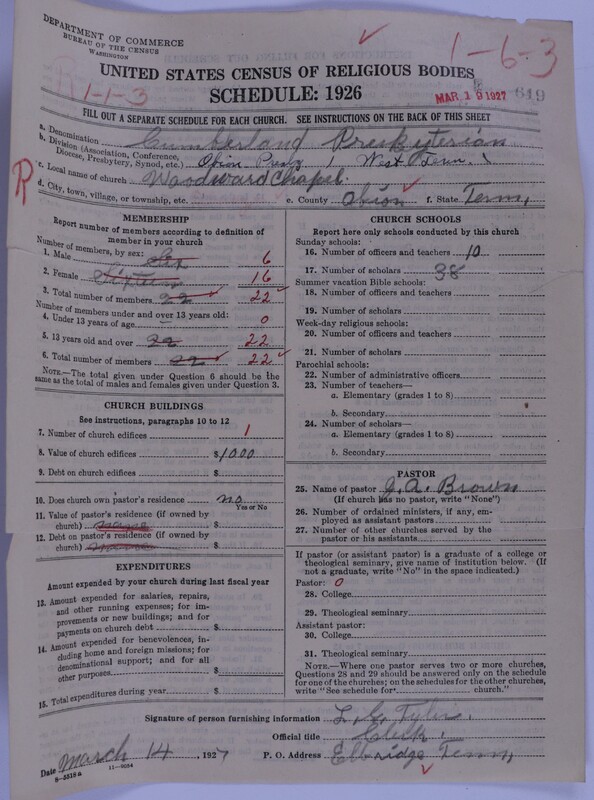 DEPARTMENT OF COMMERCE
BUREAU OF THE CENSUS
WASHINGTON
1-6-3
R 1-1-3
UNITED STATES CENSUS OF RELIGIOUS BODIES
SCHEDULE: 1926
MAR 19 1927 619
FILL OUT A SEPARATE SCHEDULE FOR EACH CHURCH. SEE INSTRUCTIONS ON THE BACK OF THIS SHEET
a. Denomination Cumberland Presbyterian
b. Division (Association, Conference, Diocese, Presbytery, Synod, etc.) Obion Presby West Tenn.
R
c. Local name of church Woodward Chapel
d. City, town, village, or township, etc. e. County Obion f. State Tenn,
MEMBERSHIP
Report number of members according to definition of member in your church
Number of members, by sex:
1. Male Six 6
2. Female Sixteen 16
3. Total number of members 22 22
Number of members under and over 13 years old:
4. Under 13 years of age 0
5. 13 years old and over 22 22
6. Total number of members 22 22
NOTE.—The total given under Question 6 should be the same as the total of males and females given under Question 3.
CHURCH BUILDINGS
See instructions, paragraphs 10 to 12
7. Number of church edifices 1
8. Value of church edifices $1000
9. Debt on church edifices $
10. Does church own pastor's residence no
Yes or No
11. Value of pastor's residence (if owned by church) $
12. Debt on pastor's residence (if owned by church) $
EXPENDITURES
Amount expended by your church during last fiscal year
13. Amount expended for salaries, repairs, and other running expenses; for improvements or new buildings; and for payments on church debt $
14. Amount expended for benevolences, including home and foreign missions; for denominational support; and for all other purposes $
15. Total expenditures during year $
CHURCH SCHOOLS
Report here only schools conducted by this church
Sunday schools:
16. Number of officers and teachers 10
17. Number of scholars 38
Summer vacation Bible schools:
18. Number of officers and teachers
19. Number of scholars
Week-day religious schools:
20. Number of officers and teachers
21. Number of scholars
Parochial schools:
22. Number of administrative officers
23. Number of teachers—
a. Elementary (grades 1 to 8)
b. Secondary
24. Number of scholars—
a. Elementary (grades 1 to 8)
b. Secondary
PASTOR
25. Name of pastor J. A. Brown
(If church has no pastor, write "None")
26. Number of ordained ministers, if any, employed as assistant pastors
27. Number of other churches served by the pastor or his assistants
If pastor (or assistant pastor) is a graduate of a college or theological seminary, give name of institution below. (If not a graduate, write "No" in the space indicated.)
Pastor: 0
28. College
29. Theological seminary
Assistant pastor:
30. College
31. Theological seminary
NOTE.—Where one pastor serves two or more churches, Questions 28 and 29 should be answered only on the schedule for one of the churches; on the schedules for the other churches, write "See schedule for church."
Signature of person furnishing information
Official title Clerk.
Date March 14, 1927 P. O. Address Elbridge Tenn,
8-5518a 11-9034